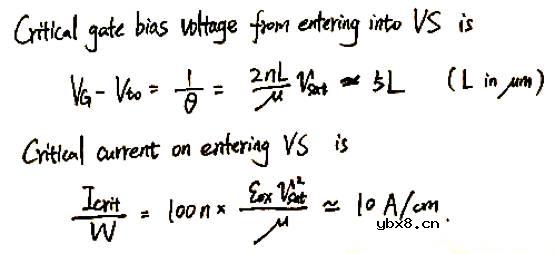 Critical gate bias voltage from entering into VS is
V_G - V_to = 1/θ = 2nL/μ V_sat ≃ 5L (L in μm)
Critical current on entering VS is
I_crit/W = 100n × ε_ox V_sat²/μ ≃ 10 A/cm.
ybx8.cn